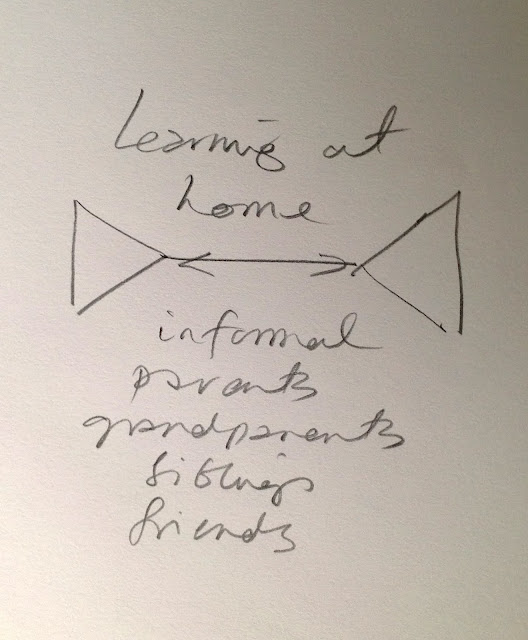 Learning at
home
informal
parents
grandparents
siblings
friends